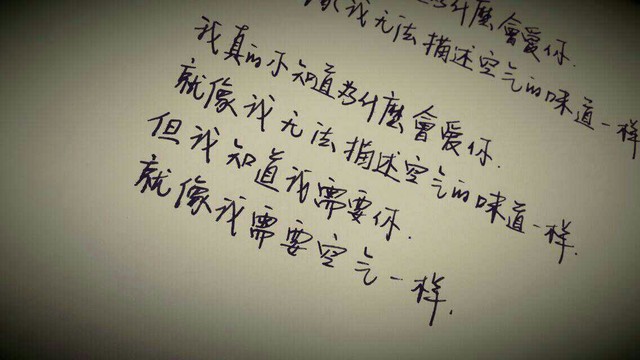 為什麼會愛你.
像我无法描述空气的味道一样
我真的不知道為什麼會愛你.
就像我无法描述空气的味道一样.
但我知道我需要你.
就像我需要空气一样.